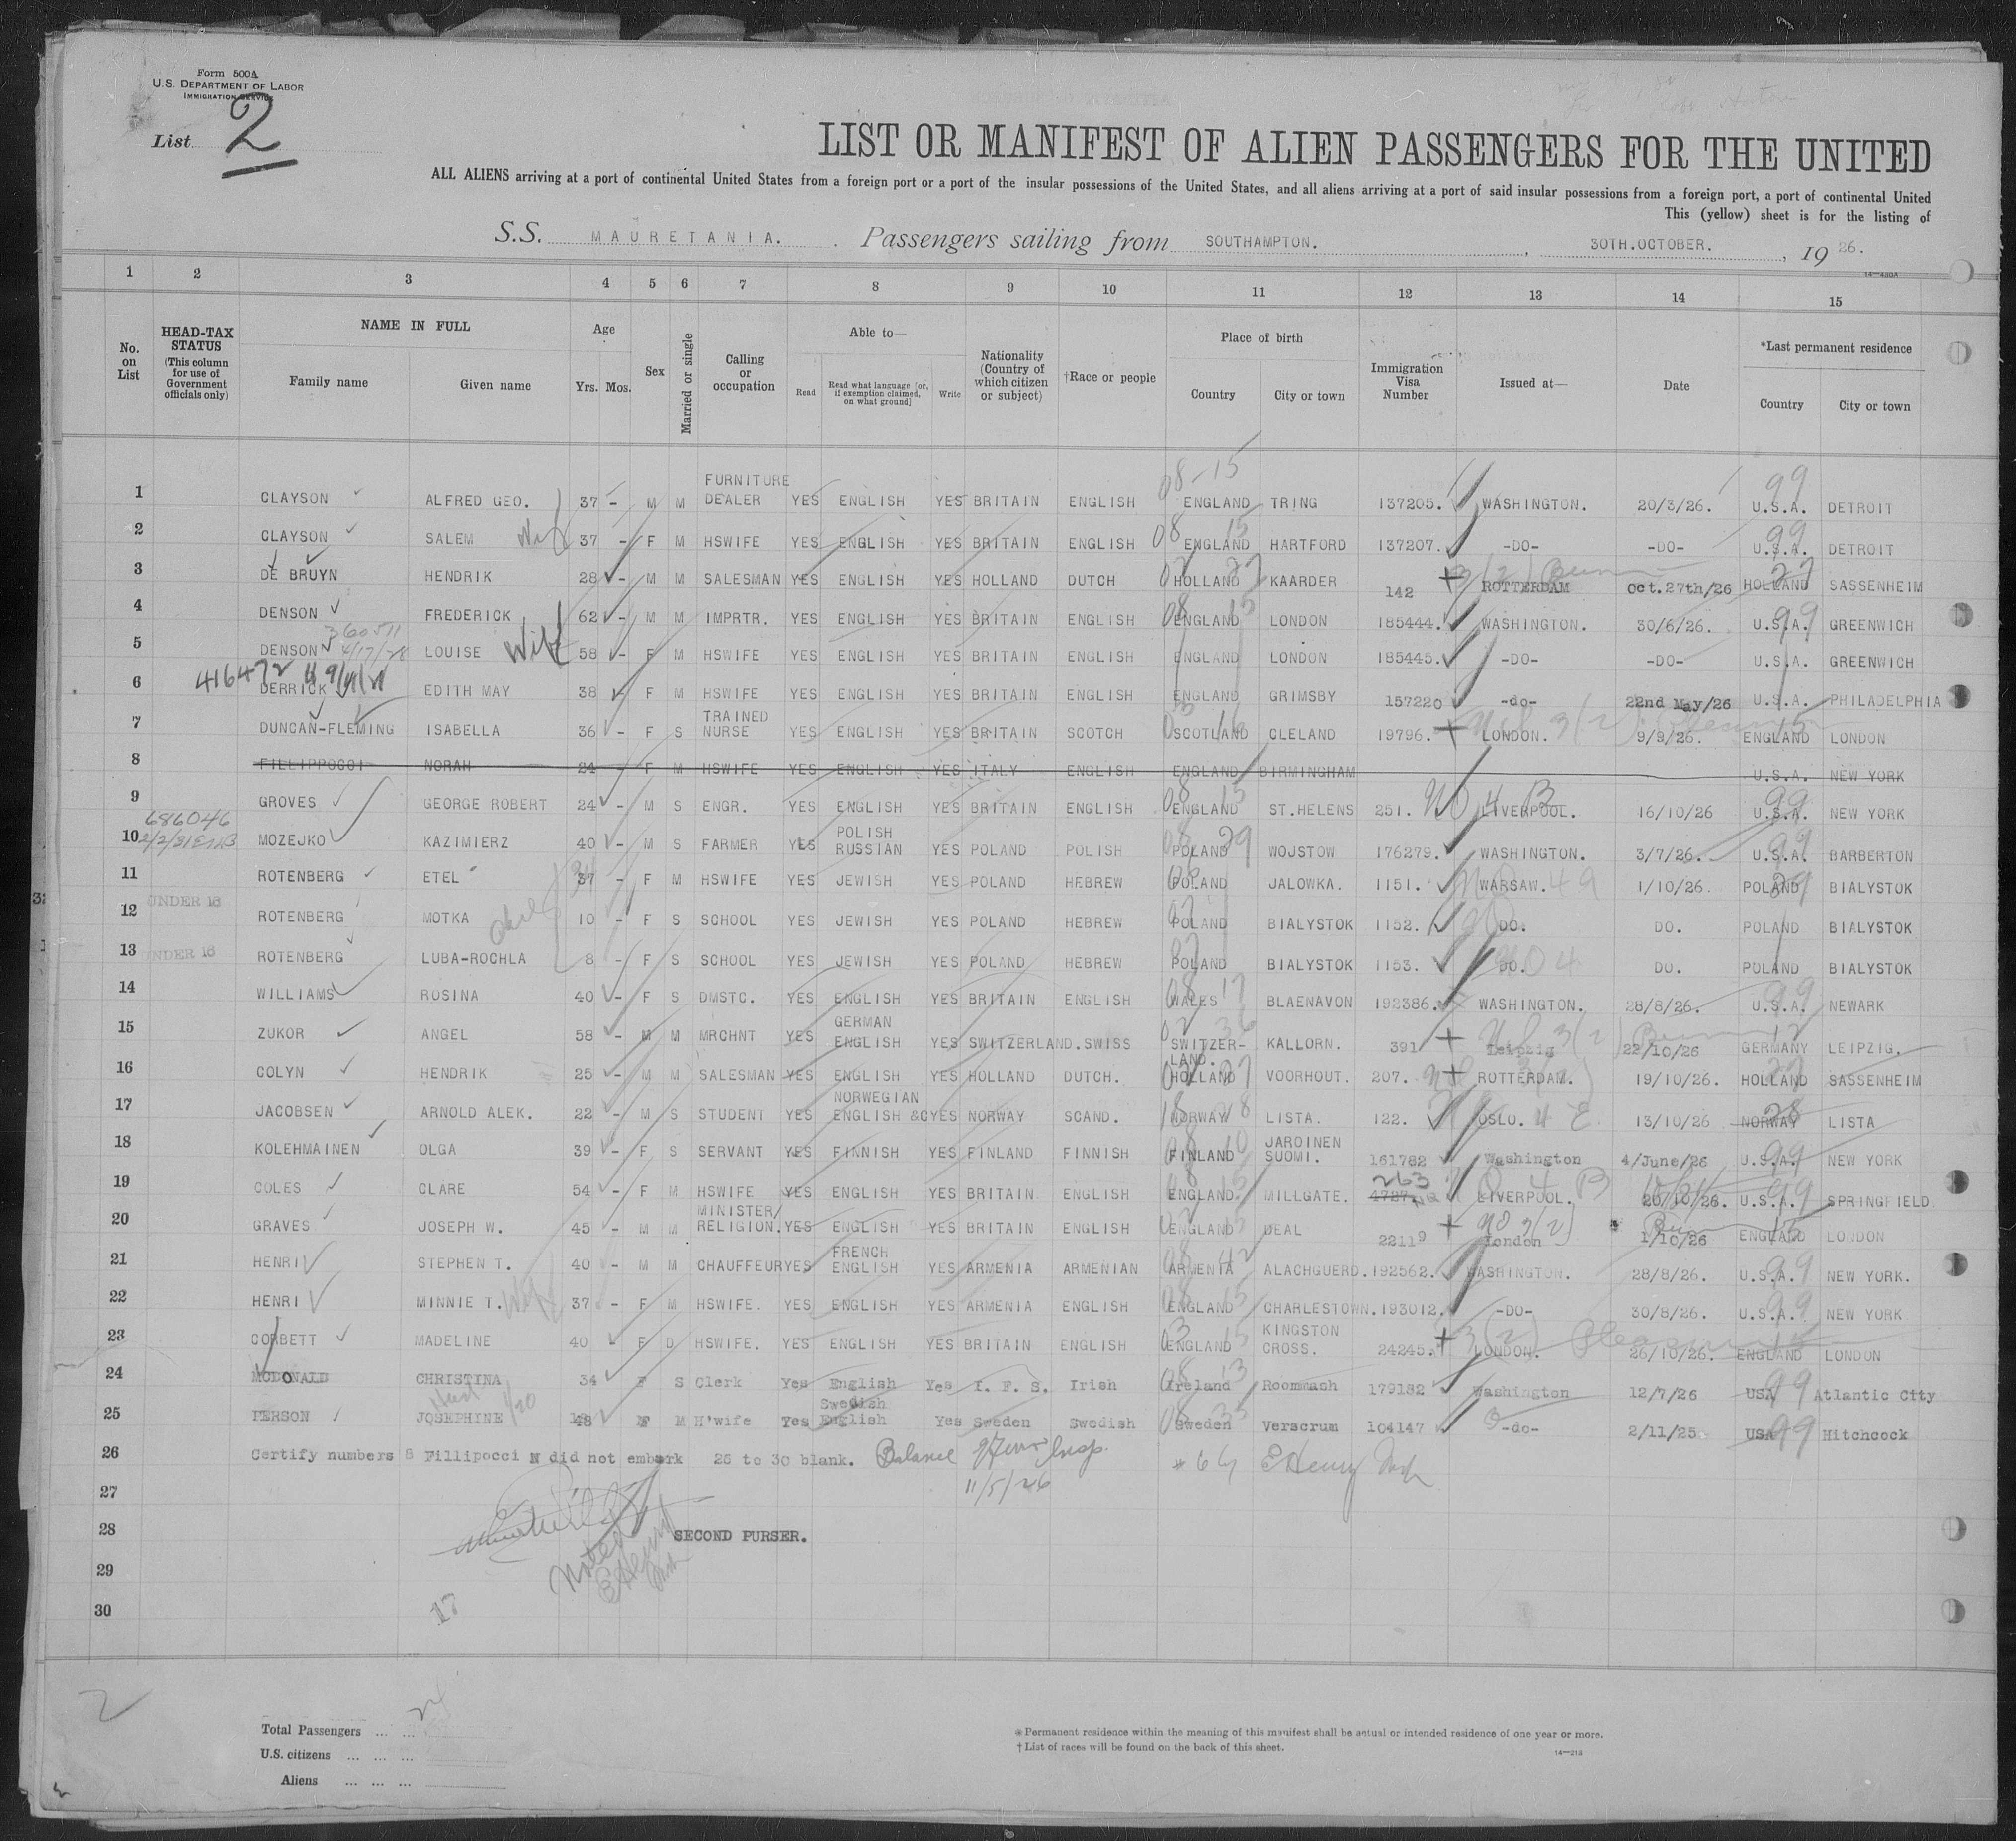 Form 500A
U.S. DEPARTMENT OF LABOR
IMMIGRATION SERVICE
List 2
LIST OR MANIFEST OF ALIEN PASSENGERS FOR THE UNITED
ALL ALIENS arriving at a port of continental United States from a foreign port or a port of the insular possessions of the United States, and all aliens arriving at a port of said insular possessions from a foreign port, a port of continental United
This (yellow) sheet is for the listing of
S.S. MAURETANIA. Passengers sailing from SOUTHAMPTON. , 30TH.OCTOBER. , 19 26.
14—430A
1 2 3 4 5 6 7 8 9 10 11 12 13 14 15
No. on List
HEAD-TAX STATUS (This column for use of Government officials only)
NAME IN FULL
Family name Given name
Age
Yrs. Mos.
Sex
Married or single
Calling or occupation
Able to—
Read Read what language [or, if exemption claimed, on what ground] Write
Nationality (Country of which citizen or subject)
†Race or people
Place of birth
Country City or town
Immigration Visa Number
Issued at—
Date
*Last permanent residence
Country City or town
1 CLAYSON ALFRED GEO. 37 - M M FURNITURE DEALER YES ENGLISH YES BRITAIN ENGLISH 08-15 ENGLAND TRING 137205. WASHINGTON. 20/3/26. 99 U.S.A. DETROIT
2 CLAYSON SALEM Wife 37 - F M HSWIFE YES ENGLISH YES BRITAIN ENGLISH 08 15 ENGLAND HARTFORD 137207. -DO- -DO- 99 U.S.A. DETROIT
3 DE BRUYN HENDRIK 28 - M M SALESMAN YES ENGLISH YES HOLLAND DUTCH HOLLAND 27 KAARDER 142 3(2) ROTTERDAM Oct.27th/26 27 HOLLAND SASSENHEIM
4 DENSON FREDERICK 62 - M M IMPRTR. YES ENGLISH YES BRITAIN ENGLISH 08 15 ENGLAND LONDON 185444. WASHINGTON. 30/6/26. 99 U.S.A. GREENWICH
360511
5 DENSON 4/17/28 LOUISE Wife 58 - F M HSWIFE YES ENGLISH YES BRITAIN ENGLISH ENGLAND LONDON 185445. -DO- -DO- U.S.A. GREENWICH
416472
6 DERRICK EDITH MAY 38 - F M HSWIFE YES ENGLISH YES BRITAIN ENGLISH ENGLAND GRIMSBY 157220 -do- 22nd May/26 U.S.A. PHILADELPHIA
7 DUNCAN-FLEMING ISABELLA 36 - F S TRAINED NURSE YES ENGLISH YES BRITAIN SCOTCH 03 16 SCOTLAND CLELAND 19796. LONDON. 3(2) 9/9/26. 15 ENGLAND LONDON
8 FILLIPPOCCI NORAH 24 - F M HSWIFE YES ENGLISH YES ITALY ENGLISH ENGLAND BIRMINGHAM U.S.A. NEW YORK
9 GROVES GEORGE ROBERT 24 - M S ENGR. YES ENGLISH YES BRITAIN ENGLISH 08 15 ENGLAND ST.HELENS 251. NO 4 B LIVERPOOL. 16/10/26 99 U.S.A. NEW YORK
686046
10 MOZEJKO KAZIMIERZ 40 - M S FARMER YES POLISH RUSSIAN YES POLAND POLISH 08 29 POLAND WOJSTOW 176279. WASHINGTON. 3/7/26. 99 U.S.A. BARBERTON
11 ROTENBERG ETEL 37 - F M HSWIFE YES JEWISH YES POLAND HEBREW POLAND JALOWKA. 1151. WARSAW. 1/10/26. 29 POLAND BIALYSTOK
12 UNDER 16 ROTENBERG MOTKA 10 - F S SCHOOL YES JEWISH YES POLAND HEBREW POLAND BIALYSTOK 1152. DO. DO. POLAND BIALYSTOK
13 UNDER 16 ROTENBERG LUBA-ROCHLA 8 - F S SCHOOL YES JEWISH YES POLAND HEBREW POLAND BIALYSTOK 1153. DO. DO. POLAND BIALYSTOK
14 WILLIAMS ROSINA 40 - F S DMSTC. YES ENGLISH YES BRITAIN ENGLISH 08 17 WALES BLAENAVON 192386. WASHINGTON. 28/8/26. 99 U.S.A. NEWARK
15 ZUKOR ANGEL 58 - M M MRCHNT YES GERMAN ENGLISH YES SWITZERLAND.SWISS 36 SWITZER-LAND. KALLORN. 391 3(2) Leipzig 22/10/26 12 GERMANY LEIPZIG.
16 COLYN HENDRIK 25 - M M SALESMAN YES ENGLISH YES HOLLAND DUTCH. 27 HOLLAND VOORHOUT. 207. ROTTERDAM. 19/10/26. 27 HOLLAND SASSENHEIM
17 JACOBSEN ARNOLD ALEK. 22 - M S STUDENT YES NORWEGIAN ENGLISH &C YES NORWAY SCAND. 18 28 NORWAY LISTA. 122. OSLO. 4 E 13/10/26 28 NORWAY LISTA
18 KOLEHMAINEN OLGA 39 - F S SERVANT YES FINNISH YES FINLAND FINNISH 08 10 FINLAND JAROINEN SUOMI. 161782 Washington 4/June/26 99 U.S.A. NEW YORK
19 COLES CLARE 54 - F M HSWIFE YES ENGLISH YES BRITAIN ENGLISH 15 ENGLAND. MILLGATE. 263 4727. LIVERPOOL. 4 B 20/10/26. 99 U.S.A. SPRINGFIELD
20 GRAVES JOSEPH W. 45 - M M MINISTER/RELIGION. YES ENGLISH YES BRITAIN ENGLISH 15 ENGLAND DEAL 22119 London 1/10/26 15 ENGLAND LONDON
21 HENRI STEPHEN T. 40 - M M CHAUFFEUR YES FRENCH ENGLISH YES ARMENIA ARMENIAN 08 42 ARMENIA ALACHGUERD. 192562. WASHINGTON. 28/8/26. 99 U.S.A. NEW YORK.
22 HENRI MINNIE T. Wife 37 - F M HSWIFE. YES ENGLISH YES ARMENIA ENGLISH 08 15 ENGLAND CHARLESTOWN. 193012. -DO- 30/8/26. 99 U.S.A. NEW YORK
23 CORBETT MADELINE 40 - F D HSWIFE. YES ENGLISH YES BRITAIN ENGLISH 03 15 ENGLAND KINGSTON CROSS. 24245. 3(2) LONDON. 26/10/26. 15 ENGLAND LONDON
24 MCDONALD CHRISTINA 34 F S Clerk Yes English Yes I. F. S. Irish 08 13 Ireland Roommash 179182 Washington 12/7/26 99 USA Atlantic City
25 PERSON JOSEPHINE 48 F M H'wife Yes Swedish English Yes Sweden Swedish 08 33 Sweden Verscrum 104147 -do- 2/11/25 99 USA Hitchcock
26 Certify numbers 8 Fillipocci N did not embark 25 to 30 blank. Balance Insp. E Henry
27 11/5/26
28 SECOND PURSER.
Noted
E Henry
29
30
17
2
Total Passengers ... ... 24
U.S. citizens ... ... ...
Aliens ... ... ...
* Permanent residence within the meaning of this manifest shall be actual or intended residence of one year or more.
† List of races will be found on the back of this sheet.
14—213